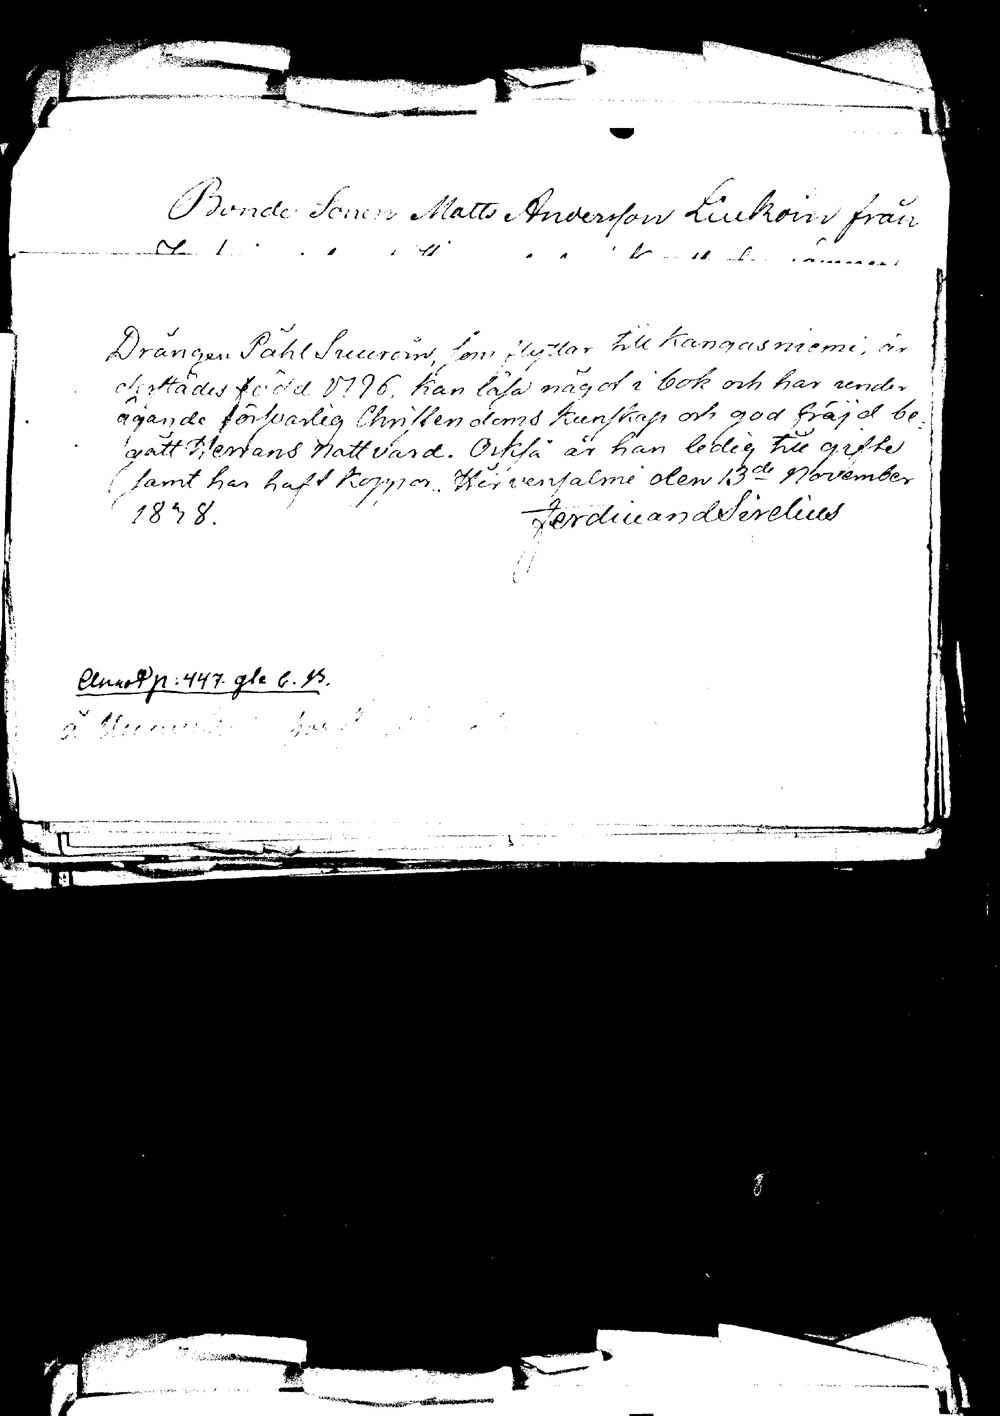 Bonde Sonen Matts Andersson Liukoin från
Drängen Påhl Suuroin, som flyttar till Kangasniemi, är
derstädes född 1796, kan läsa något i bok och har under
ägande förswarlig Christendoms kunskap och god fräjd be-
gått Herrans Nattvard. Också är han ledig till gifte
samt har haft koppor. Hirvensalmi den 13de November
18 8.
Ferdinand Sirelius
Annot p: 447. gla C. B.